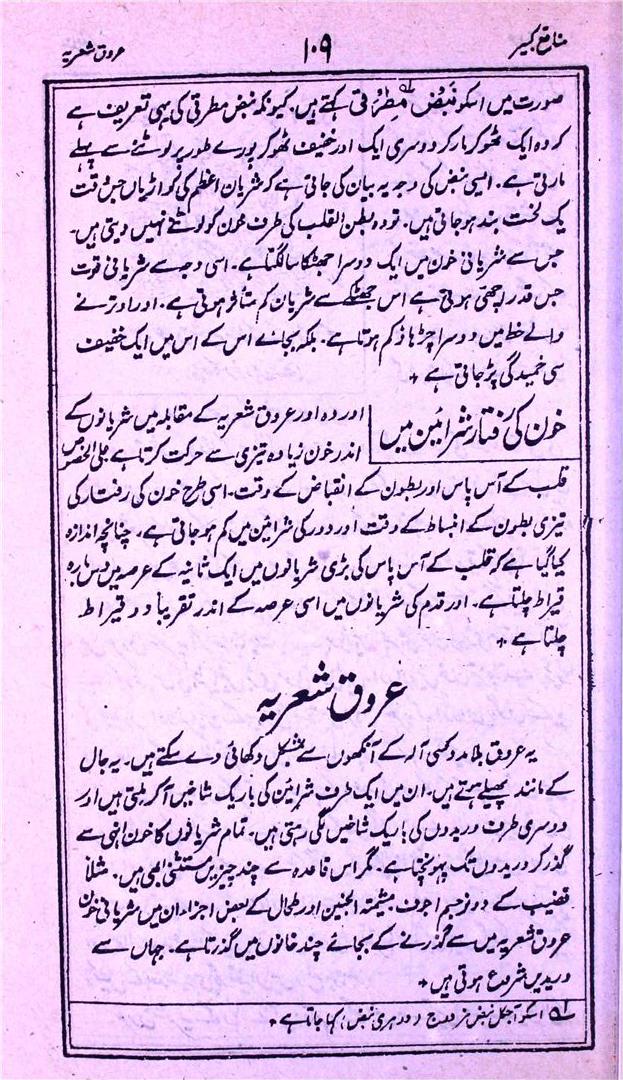 منافع کبیر
۱۰۹
عروق شعریہ
صورت میں اسکو نبض مطرقی کہتے ہیں۔ کیونکہ نبض مطرقی کی یہی تعریف ہے
کہ وہ ایک ٹھوکر مار کر دوسری ایک اور خفیف ٹھوکر پورے طور پر لوٹنے سے پہلے
مارتی ہے۔ ایسی نبض کی وجہ یہ بیان کی جاتی ہے کہ شریان اعظم کی کواڑیاں جس وقت
یک لخت بند ہو جاتی ہیں۔ تو وہ بطن القلب کی طرف خون کو لوٹنے نہیں دیتی ہیں۔
جس سے شریانی خون میں ایک دوسرا جھٹکا سا لگتا ہے۔ اسی وجہ سے شریانی قوت
جس قدر اچھی ہوتی ہے اس جھٹکے سے شریان کم متأثر ہوتی ہے۔ اور اوترنے
والے خط میں دوسرا چڑہاؤ کم ہوتا ہے۔ بلکہ بجائے اس کے اس میں ایک خفیف
سی خمیدگی پڑ جاتی ہے +
خون کی رفتار شرائین میں
اوردہ اور عروق شعریہ کے مقابلہ میں شریانوں کے
اندر خون زیادہ تیزی سے حرکت کرتا ہے علی الخصوص
قلب کے آس پاس اور بطون کے انقباض کے وقت۔ اسی طرح خون کی رفتار کی
تیزی بطون کے انبساط کے وقت اور دور کی شرائین میں کم ہو جاتی ہے۔ چنانچہ اندازہ
کیا گیا ہے کہ قلب کے آس پاس کی بڑی شریانوں میں ایک ثانیہ کے عرصہ میں دس بارہ
قیراط چلتا ہے۔ اور قدم کی شریانوں میں اسی عرصہ کے اندر تقریباً دو قیراط
چلتا ہے +
عروق شعریہ
یہ عروق بلا مدد کسی آلہ کے آنکھوں سے بمشکل دکھائی دے سکتے ہیں۔ یہ جال
کے مانند پھیلے ہوتے ہیں۔ ان میں ایک طرف شرائین کی باریک شاخیں آکر ملتی ہیں اور
دوسری طرف وریدوں کی باریک شاخیں لگی رہتی ہیں۔ تمام شریانوں کا خون انہی سے
گذر کر وریدوں تک پہونچتا ہے۔ مگر اس قاعدہ سے چند چیزیں مستثنیٰ بھی ہیں۔ مثلاً
قضیب کے دونوں جسم اجوف، مشیمۃ الجنین اور طحال کے بعض اجزا۔ ان میں شریانی خون
عروق شعریہ میں سے گذرنے کے بجائے چند خانوں میں گذرتا ہے۔ جہاں سے
وریدیں شروع ہوتی ہیں +
۱؎ اسکو آجکل نبض مزدوج (دوہری نبض) کہا جاتا ہے +